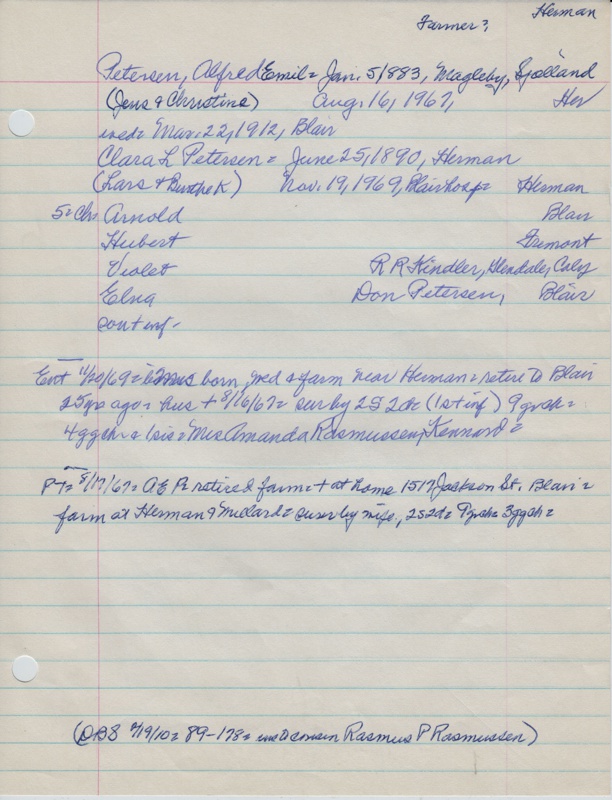 Herman
Farmer?
Petersen, Alfred Emil = Jan. 5, 1883, Magleby, Sjælland
(Jens & Christine) Aug. 16, 1967, Her
med = Mar. 22, 1912, Blair
Clara L Petersen = June 25, 1890, Herman
(Lars + Birthe K) Nov. 19, 1969, Blair hosp = Herman
5 = Ch: Arnold Blair
Hubert Fremont
Violet R R Kindler, Glendale, Calif
Elna Don Petersen, Blair
son + inf -
Ent 11/20/69 = born, med & farm near Herman = retire to Blair
25 yrs ago = hus + 8/16/67 = sur by 2S 2d = (1s + inf) 9 grch =
4 ggch & 1 sis = Mrs Amanda Rasmussen, Kennard =
PT = 8/17/67 = A E P = retired farm = + at home 1517 Jackson St. Blair =
farm at Herman & Millard = sur by wife, 2S 2d = 9 grch = 3 ggch =
(DB8 19/10 = 89-178 = cousin Rasmus P Rasmussen)